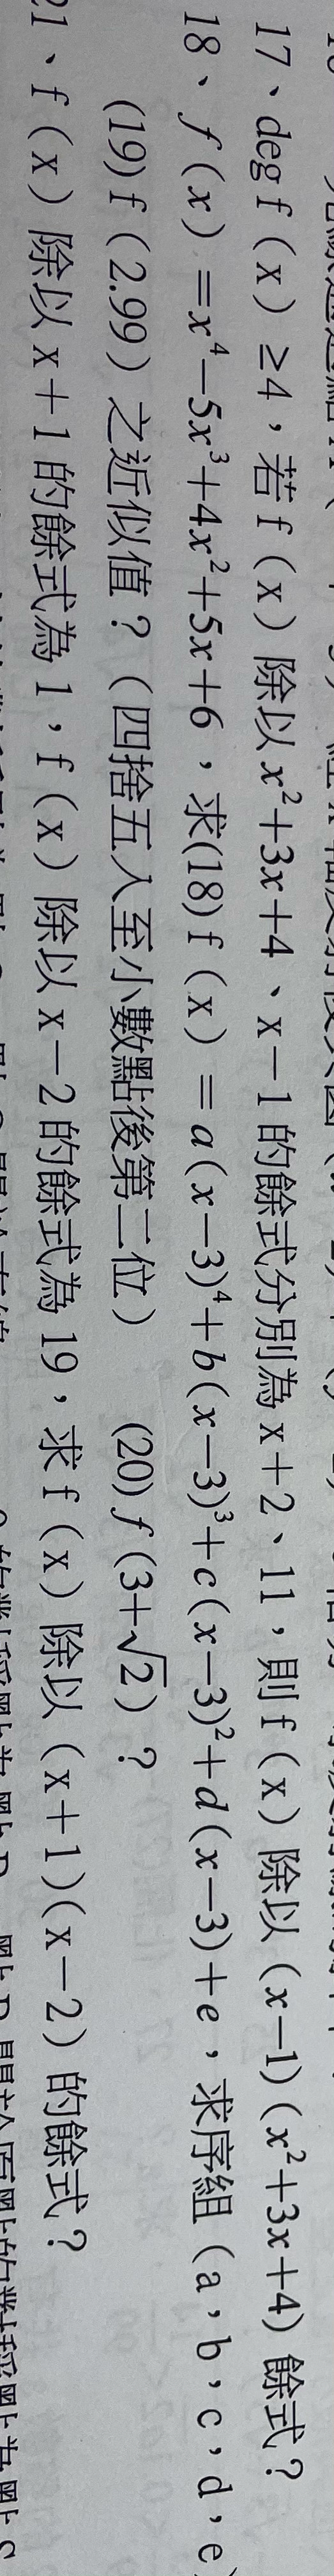 17、deg f（x）≥4，若 f（x）除以 x²+3x+4、x－1 的餘式分別為 x＋2、11，則 f（x）除以（x－1）（x²+3x+4）餘式？
18、f（x）=x⁴－5x³+4x²+5x+6，求(18) f（x）＝a(x－3)⁴＋b(x－3)³＋c(x－3)²＋d(x－3)＋e，求序組（a，b，c，d，e
(19) f（2.99）之近似值？（四捨五入至小數點後第二位） (20) f (3+√2)？
21、f（x）除以 x＋1 的餘式為 1，f（x）除以 x－2 的餘式為 19，求 f（x）除以（x＋1）（x－2）的餘式？